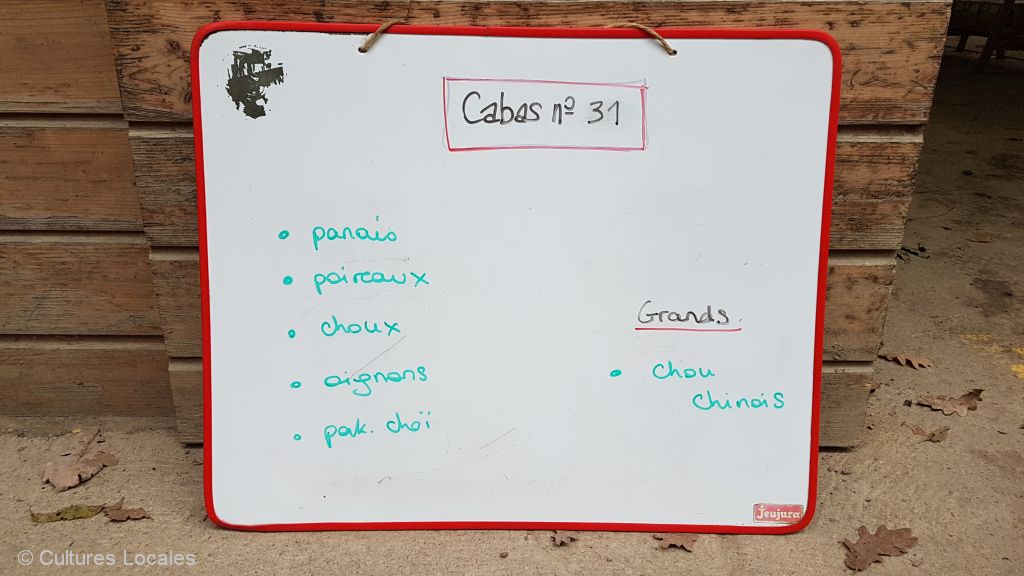 Cabas nº 31
• panais
• poireaux
• choux
• oignons
• pak. choï
Grands.
• chou
chinois
Jeujura
© Cultures Locales